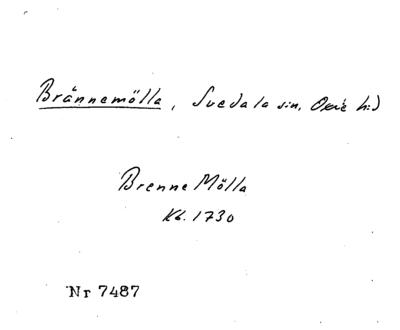 Brännemölla, Svedala sn, Oxie hd
Brenne Mölla
Kb. 1730
Nr 7487